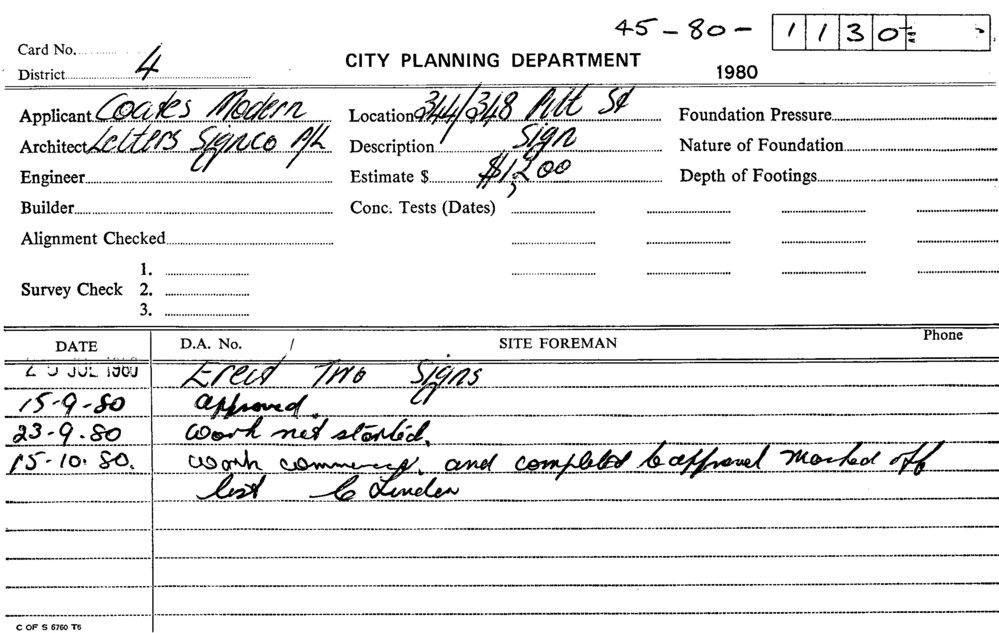 45-80- 1130
Card No.
District 4
CITY PLANNING DEPARTMENT
1980
Applicant Coates Modern
Location 344/348 Pitt St
Foundation Pressure
Architect Letters Signco P/L
Description Sign
Nature of Foundation
Engineer
Estimate $ $1,200
Depth of Footings
Builder
Conc. Tests (Dates)
Alignment Checked
1.
Survey Check 2.
3.
DATE D.A. No. / SITE FOREMAN Phone
JUL 1980 Erect Two Signs
15-9-80 approved.
23-9-80 work not started.
15-10-80. work commenced and completed to approval Marked off
list C Linden
C OF S 6760 T6